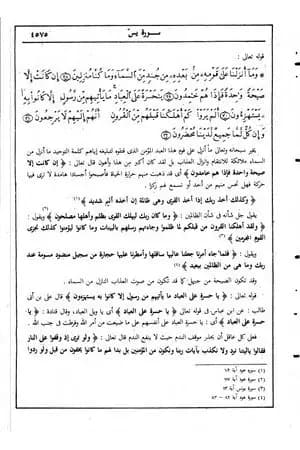 سورة يس
٤٥٧٥
قوله تعالى :
* وما أنزلنا على قومه من بعده من جند من السماء وما كنا منزلين (٢٨) إن كانت إلا
صيحة واحدة فإذا هم خامدون (٢٩) يا حسرة على العباد ما يأتيهم من رسول إلا كانوا به
يستهزءون (٣٠) ألم يروا كم أهلكنا قبلهم من القرون أنهم إليهم لا يرجعون (٣١)
وإن كل لما جميع لدينا محضرون (٣٢)
يخبر سبحانه وتعالى ما أنزل على قوم هذا العبد المؤمن الذى قتلوه لتبليغه إياهم كلمة التوحيد من
السماء ملائكة للانتقام وانزال العذاب بل لقد كان أكبر من هذا وأهون فقال تعالى : ﴿ إن كانت إلا
صيحة واحدة فإذا هم خامدون ﴾ أى قد ذهبت منهم حرارة الحياة فأصبحوا أجسادا هامدة لا ترى فيها
حركة فهل تحس منهم من أحد أو تسمع لهم ركزا .
﴿ وكذلك أخذ ربك إذا أخذ القرى وهى ظالمة إن أخذه أليم شديد ﴾ (١)
يقول جل شأنه فى شأن الظالمين : ﴿ وما كان ربك ليهلك القرى بظلم وأهلها مصلحون ﴾ (٢) ويقول :
﴿ ولقد أهلكنا القرون من قبلكم لما ظلموا وجاءتهم رسلهم بالبينات وما كانوا ليؤمنوا كذلك نجزى
القوم المجرمين ﴾ (٣)
ويقول : ﴿ فلما جاء أمرنا جعلنا عاليها سافلها وأمطرنا عليها حجارة من سجيل منضود مسومة عند
ربك وما هى من الظالمين ببعيد ﴾ (٤)
وقد تكون الصيحة من جبريل كما قد تكون من صوت العذاب النازل من السماء .
قوله تعالى ﴿ يا حسرة على العباد ما يأتيهم من رسول إلا كانوا به يستهزءون ﴾ قال على بن أبى
طالب : عن ابن عباس فى قوله تعالى ﴿ يا حسرة على العباد ﴾ أى يا ويل العباد ، وقال قتادة : ﴿ يا
حسرة على العباد ﴾ أى : يا حسرة العباد على أنفسهم على ما ضيعت من أمر الله وفرطت فى جنب الله .
فعل كل عاقل أن يحذر موقف الندم حيث لا ينفع الندم قال تعالى : ﴿ ولو ترى إذ وقفوا على النار
فقالوا ياليتنا نرد ولا نكذب بآيات ربنا ونكون من المؤمنين بل بدا لهم ما كانوا يخفون من قبل ولو ردوا
(١) سورة هود آية
(٢) سورة هود آية
(٣) سورة يونس آية ١٣
(٤) سورة هود آية ٨٢ - ٨٣